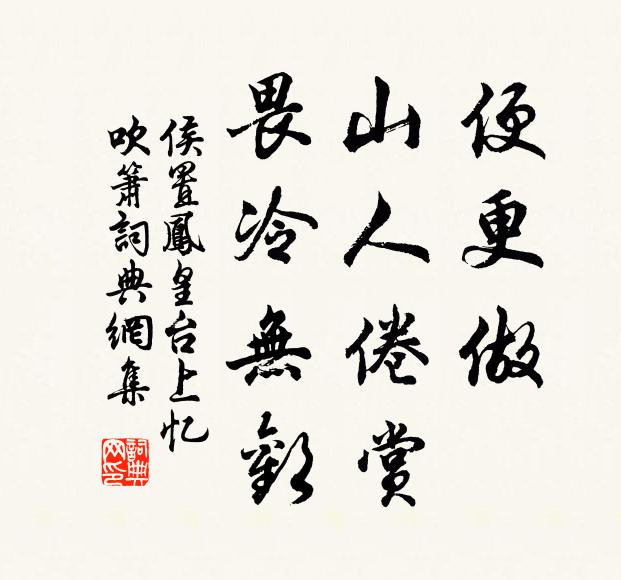 便更做
山人倦赏
畏冷無歡
侯置鳳皇台上忆
吹簫詞典網集
詞典网印